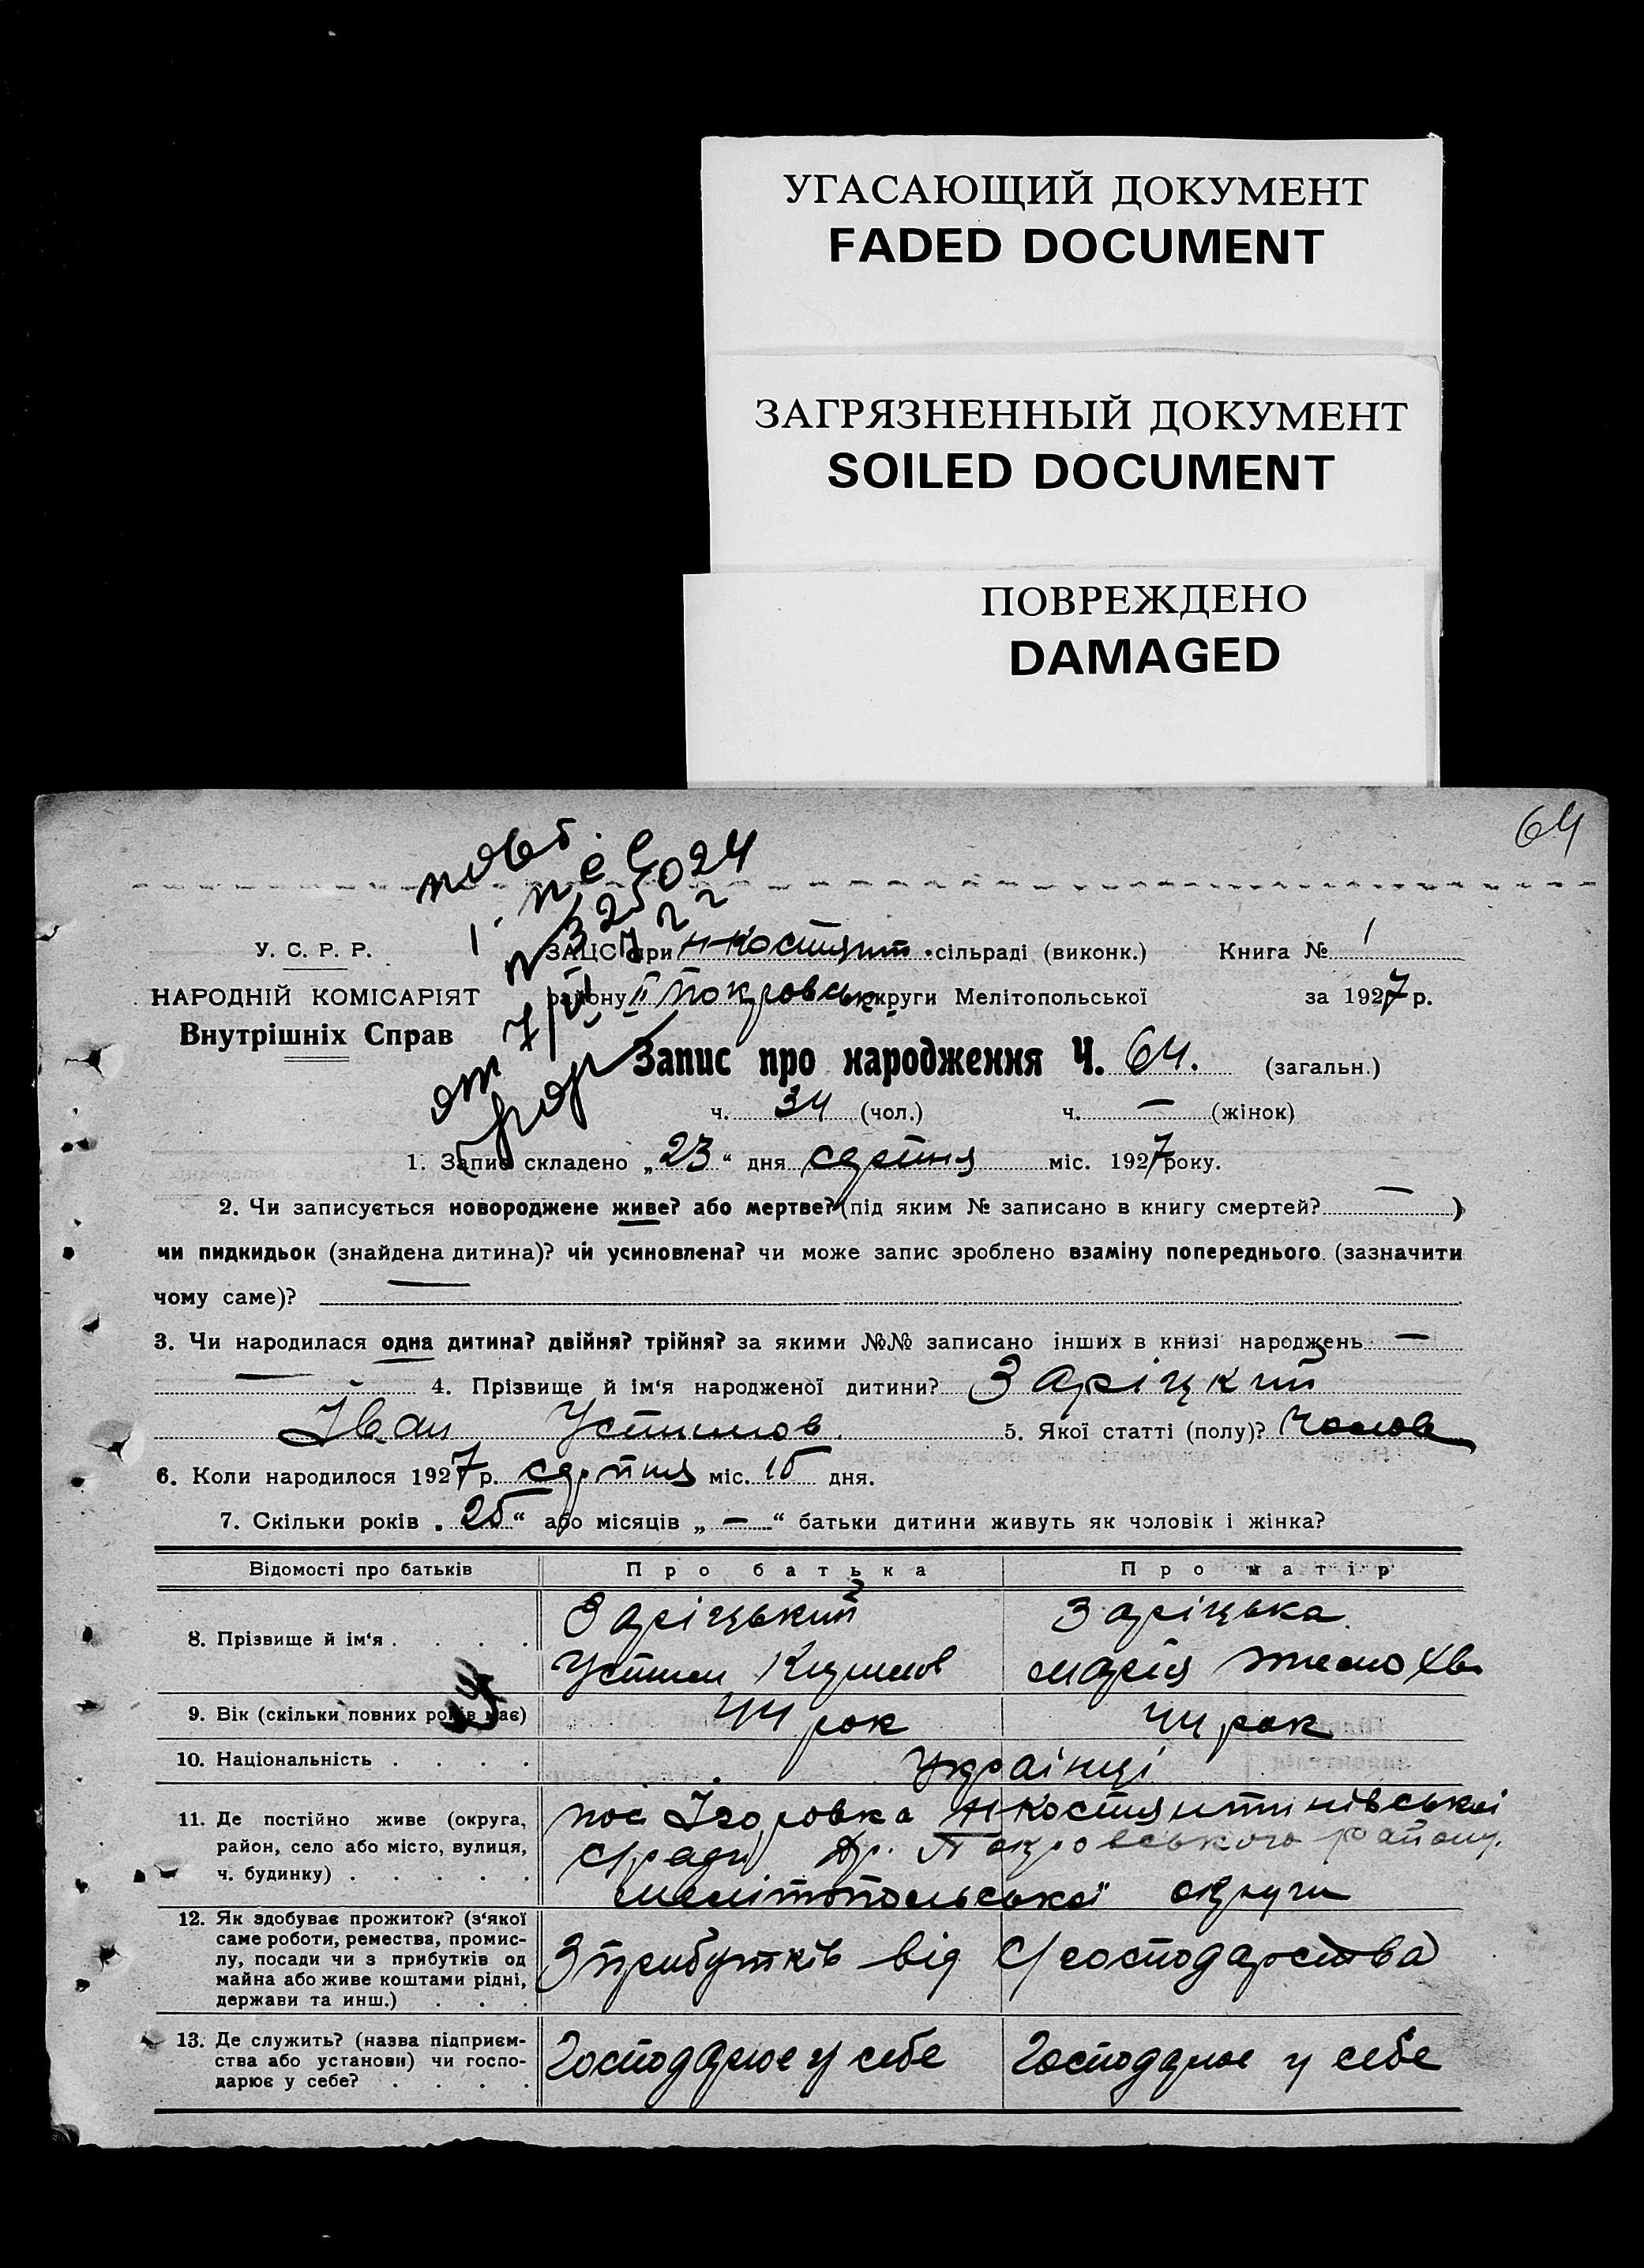 УГАСАЮЩИЙ ДОКУМЕНТ
FADED DOCUMENT
ЗАГРЯЗНЕННЫЙ ДОКУМЕНТ
SOILED DOCUMENT
ПОВРЕЖДЕНО
DAMAGED
64
У. С. Р. Р.
ЗАЦС при Н-Костянт. сільраді (виконк.) Книга № 1
НАРОДНІЙ КОМІСАРІЯТ
району Покровськ округи Мелітопольської за 1927 р.
Внутрішніх Справ
Запис про народження Ч. 64. (загальн.)
ч. 34 (чол.) ч. — (жінок)
1. Запис складено „23“ дня серпня міс. 1927 року.
2. Чи записується новороджене живе? або мертве? (під яким № записано в книгу смертей? — )
чи пидкидьок (знайдена дитина)? чи усиновлена? чи може запис зроблено взаміну попереднього (зазначити
чому саме)? —
3. Чи народилася одна дитина? двійня? трійня? за якими №№ записано інших в книзі народжень —
— 4. Прізвище й ім'я народженої дитини? Заріцкий
Іван Устимов. 5. Якої статті (полу)? Чолов
6. Коли народилося 1927 р. серпня міс. 15 дня.
7. Скільки років „25“ або місяців „—“ батьки дитини живуть як чоловік і жінка?
Відомості про батьків Про батька Про матір
8. Прізвище й ім'я . . . . Заріцький Заріцька
Устим Марія
9. Вік (скільки повних років має) 44 рок 44 рок
10. Національність . . . . Українці
11. Де постійно живе (округа, пос Ігоровка Н-Костянтинівської
район, село або місто, вулиця, с/ради Др. Покровського району,
ч. будинку) . . . . . Мелітопольської округи
12. Як здобуває прожиток? (з'якої
саме роботи, ремества, промис-
лу, посади чи з прибутків од З прибутків від с/господарства
майна або живе коштами рідні,
держави та инш.) . . .
13. Де служить? (назва підприєм-
ства або установи) чи госпо- Господарює у себе Господарює у себе
дарює у себе? . . . .